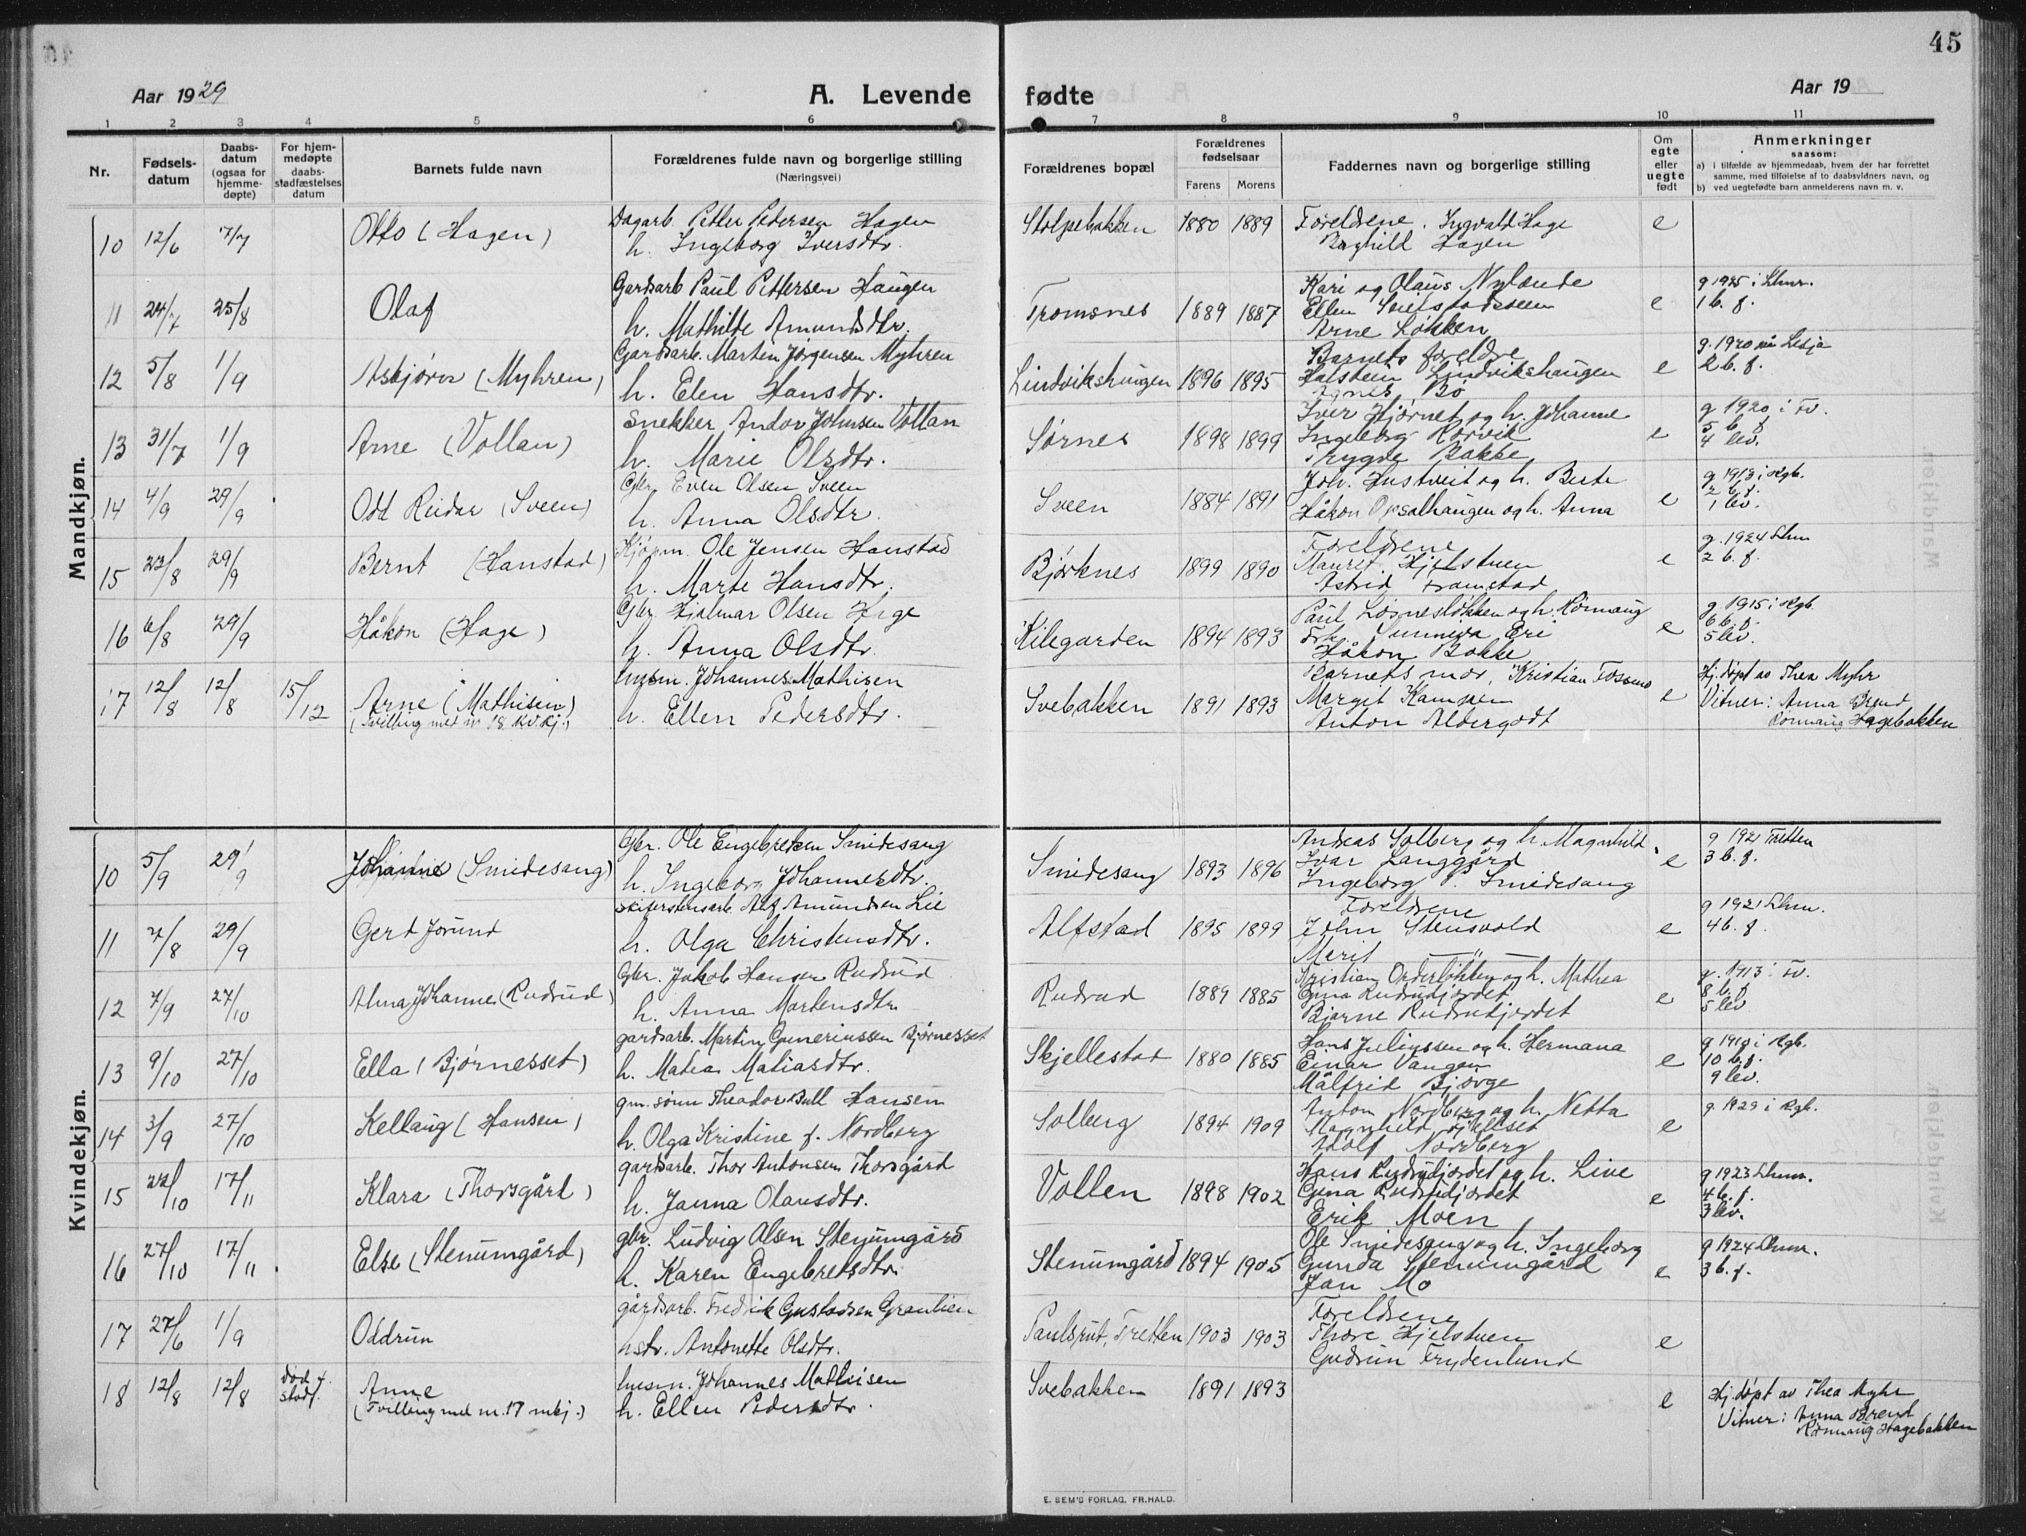 45
Aar 1929
A. Levende fødte
Aar 19
1 2 3 4 5 6 7 8 9 10 11
Nr.
Fødsels-
datum
Daabs-
datum
(ogsaa for
hjemme-
døpte)
For hjem-
medøpte
daabs-
stadfæstelses
datum
Barnets fulde navn
Forældrenes fulde navn og borgerlige stilling
(Næringsvei)
Forældrenes bopæl
Forældrenes
fødselsaar
Farens Morens
Faddernes navn og borgerlige stilling
Om
egte
eller
uegte
født
Anmerkninger
saasom:
a) i tilfælde av hjemmedaab, hvem der har forrettet
samme, med tilføielse af to daabsvidners navn, og
b) ved uegtefødte barn anmelderens navn m. v.
Mandkjøn.
10 12/6 7/7 Otto (Hagen)
Dagarb. Petter Pedersen Hagen
h. Ingeborg Iversdtr.
Stolpebakken 1880 1889
Foreldrene. Ingvald Hage
Hagen
e
11 24/7 25/8 Olaf
Gardsarb Paul Pettersen Haugen
h. Mathilde Amundsdtr.
Tromsnes 1889 1887
Kari og Olaus Nylænde
Ellen
Arne Løkken
e
g 1925 i Lhmr.
1 b. f.
12 5/8 1/9 Asbjørn (Myhren)
Gardsarb. Marten Jørgensen Myhren
h. Elen Hansdtr.
Lindvikshaugen 1896 1895
Barnets foreldre
Halstein Lindvikshaugen
Agnes Bø
e
g. 1920 på Lesja
2 b. f.
13 31/7 1/9 Arne (Vollan)
Snekker Andor Johnsen Vollan
h. Marie Olsdtr.
Sørnes 1898 1899
Iver Hjørnet og h. Johanne
Ingeborg Rørvik
Trygde Bakke
e
g 1920 i Fv.
5 b. f
4 lev.
14 4/9 29/9 Odd Reidar (Sveen)
Gbr. Even Olsen Sveen
h. Anna Olsdtr.
Sveen 1884 1891
Joh. Hustveit og h. Beste
Håkon Opsalhaugen og h. Anna
e
g 1913 i Rgb.
2 b. f.
1 lev.
15 22/8 29/9 Bernt (Hanstad)
Kjøpm. Ole Jensen Hanstad
h. Marte Hansdtr.
Bjørknes 1899 1890
Foreldrene
Hjelstuen
Astrid Framstad
e
g. 1924 Lhm
2 b. f.
16 6/8 29/9 Håkon (Hage)
Gbr Hjalmar Olsen Hage
h. Anna Olsdtr.
Kilegarden 1894 1893
Paul Løsnesløkken og h. Rønnaug
Frk. Sunneva Eri
Håkon Bakke
e
g 1915 i Rgb.
6 b. f.
5 lev.
17 12/8 12/8 15/12 Arne (Mathisen)
(Tvilling med nr 18 kv.kj.)
husm. Johannes Mathisen
h. Ellen Pedersdtr.
Svebakken 1891 1893
Barnets mor, Kristian Fossmo
Margit Kampen
Anton Aldergodt
e
Hj.døpt av Thea Myhr
Vitner: Anna Brend
Rønnaug Hagebakken
Kvindekjøn.
10 5/9 29/9 Johanne (Smidesang)
Gbr. Ole Engebretsen Smidesang
h. Ingeborg Johannesdtr.
Smidesang 1893 1896
Andreas Solberg og h. Magnhild
Ivar Langgård
Ingeborg P. Smidesang
e
g 1921 Tretten
3 b. f.
11 7/8 29/9 Gerd Jorund
Skiferstensarb. Alf Amundsen Lie
h. Olga Christensdtr.
Alfstad 1895 1899
Foreldrene
John Stensvold
Merit —"—
e
g 1921 Lhmr.
4 b. f.
12 7/9 27/10 Alma Johanne (Rudrud)
Gbr. Jakob Hansen Rudrud
h. Anna Martensdtr
Rudrud 1889 1885
Kristian Orderløkken og h. Mathea
Gina Rudrudjordet
Bjarne Rudrudjordet
e
g. 1913 i Fv.
8 b. f
5 lev
13 9/10 27/10 Ella (Bjørnesset)
gardsarb. Martin Gunerinssen Bjørnesset
h. Matea Matiasdtr.
Skjellestad 1880 1885
Hans Juliussen og h. Hermana
Einar Vangen
Målfrid Bjørge
e
g 1910 i Rgb.
10 b. f.
9 lev.
14 3/9 27/10 Kellaug (Hansen)
gm. sønn Theodor Bull Hansen
h. Olga Kristine f. Nordberg
Solberg 1894 1909
Anton Nordberg og h. Netta
Magnhild
Adolf Nordberg
e
g. 1929 i Rgb.
15 22/10 17/11 Klara (Thorsgård)
gardsarb. Thor Antonsen Thorsgård
h. Janna Olausdtr.
Vollen 1898 1902
Hans Rudrudjordet og h. Live
Gina Rudrudjordet
Erik Moen
e
g 1923 Lhmr.
4 b. f.
3 lev.
16 27/10 17/11 Else (Stenumgård)
gbr. Ludvig Olsen Stenumgård
h. Karen Engebretsdtr.
Stenumgård 1894 1905
Ole Smidesang og h. Ingeborg
Gunda Stenumgård
Jan Mo
e
g 1924 Lhmr.
3 b. f.
17 27/6 1/9 Oddrun
gårdsarb. Fredrik Gustavsen Granlien
hstr. Antonette Olsdtr.
Paulsrut, Tretten 1903 1903
Foreldrene
Thore Hjelstuen
Gudrun Frydenlund
e
18 12/8 12/8 død f.
stadf.
Anne
(Tvilling med nr. 17 mkj.)
husm. Johannes Mathisen
h. Ellen Pedersdtr.
Svebakken 1891 1893
e
Hj.døpt av Thea Myhr
Vitner: Anna Brend
Rønnaug Hagebakken
E. SEM'S FORLAG, FR.HALD.